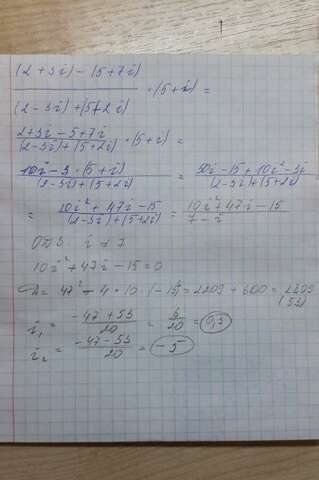 1
(2 + 3i) - (5 + 7i)
―――――――― · (5 + i) =
(2 - 3i) + (5 + 2i)
2 + 3i - 5 + 7i
―――――――― · (5 + i) =
(2 - 3i) + (5 + 2i)
10i - 3 · (5 + i) / (2 - 3i) + (5 + 2i) = 50i - 15 + 10i² - 3i / (2 - 3i) + (5 + 2i)
= 10i² + 47i - 15 / (2 - 3i) + (5 + 2i) = 10i² + 47i - 15 / 7 - i
ОДЗ: i ≠ 7
10i² + 47i - 15 = 0
D = 47² - 4 · 10 · (-15) = 2209 + 600 = 2809
(53)
i₁ = -47 + 53 / 20 = 6 / 20 = 0,3
i₂ = -47 - 53 / 20 = -5